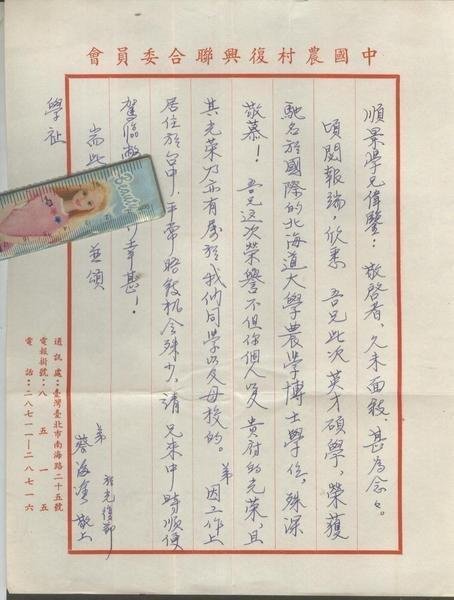 中國農村復興聯合委員會
順景學兄偉鑒：敬啓者，久未面敍，甚為念々。
頃閱報端，欣悉 吾兄此次英才碩學，榮獲
馳名於國際的北海道大學農學博士學位，殊深
敬慕！ 吾兄这次榮譽不但你個人以及 貴府的光荣，且
其光荣乃亦有屬於我們同學以及母校的。 弟因工作上
居住於台中，平常晤敍机会殊少，請 兄来中時順便
駕臨敝 幸甚！
耑此 並頌
學祉
弟 蔡海 敬上
通訊處：臺灣臺北市南海路二十五號
電報掛號：八五一五
電話：二八七一一—二八七一六